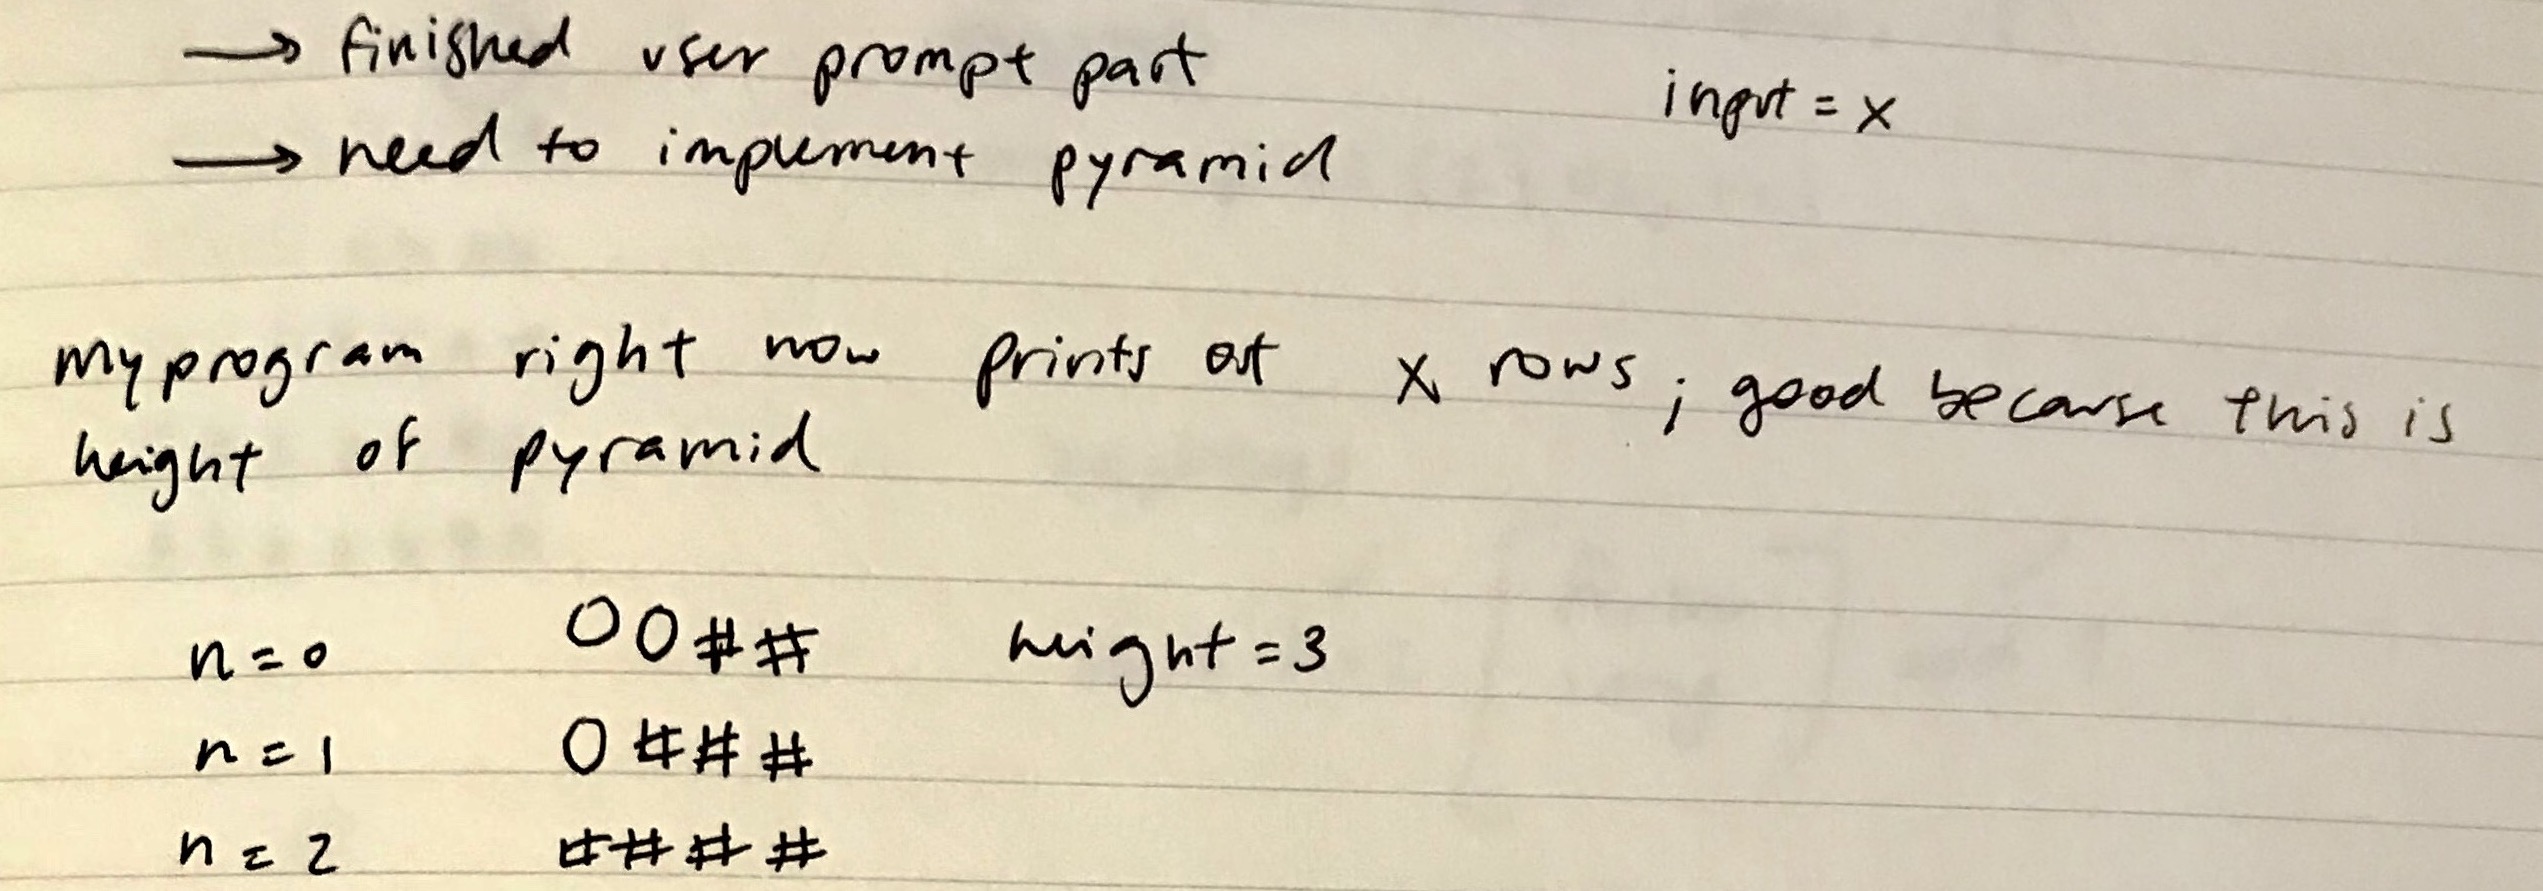 → finished user prompt part input = x
→ need to implement pyramid
my program right now prints out x rows; good because this is
height of pyramid
n = 0 OO## height = 3
n = 1 O###
n = 2 ####